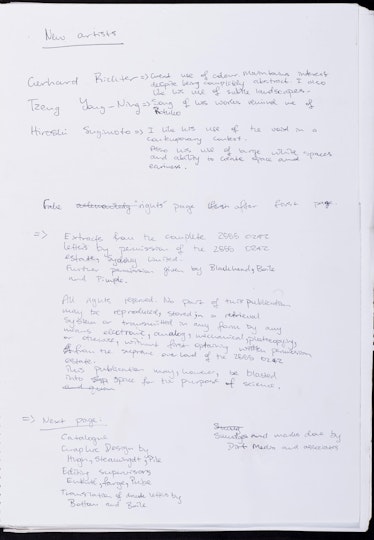 New artists
Gerhard Richter => Great use of colour maintains interest
despite being completely abstract I also
like his use of subtle landscapes.
Tzeng Yong-Ning => Some of his works remind me of
Rothko
Hiroshi Sugimoto => I like his use of the void in a
contemporary context.
Also his use of large white spaces
and ability to create space and
Fake "rights" page after first page
=> Extracts from the complete 2555 0242
letters by permission of the 2555 0242
estate, Sydney Limited.
Further permission given by
and Pimple.
All rights reserved. No part of this publication
may be reproduced, stored in a retrieval
system or transmitted in any form by any
means electronic, analog, mechanical, photocopying,
or otherwise, without first obtaining written permission
from the supreme overlord of the 2555 0242
estate.
This publication may, however, be blasted
into space for the purpose of science.
=> Next page.
Catalogue
Graphic Design by
Editing supervisors
Translation of letters by
Button and
marks done by
and associates